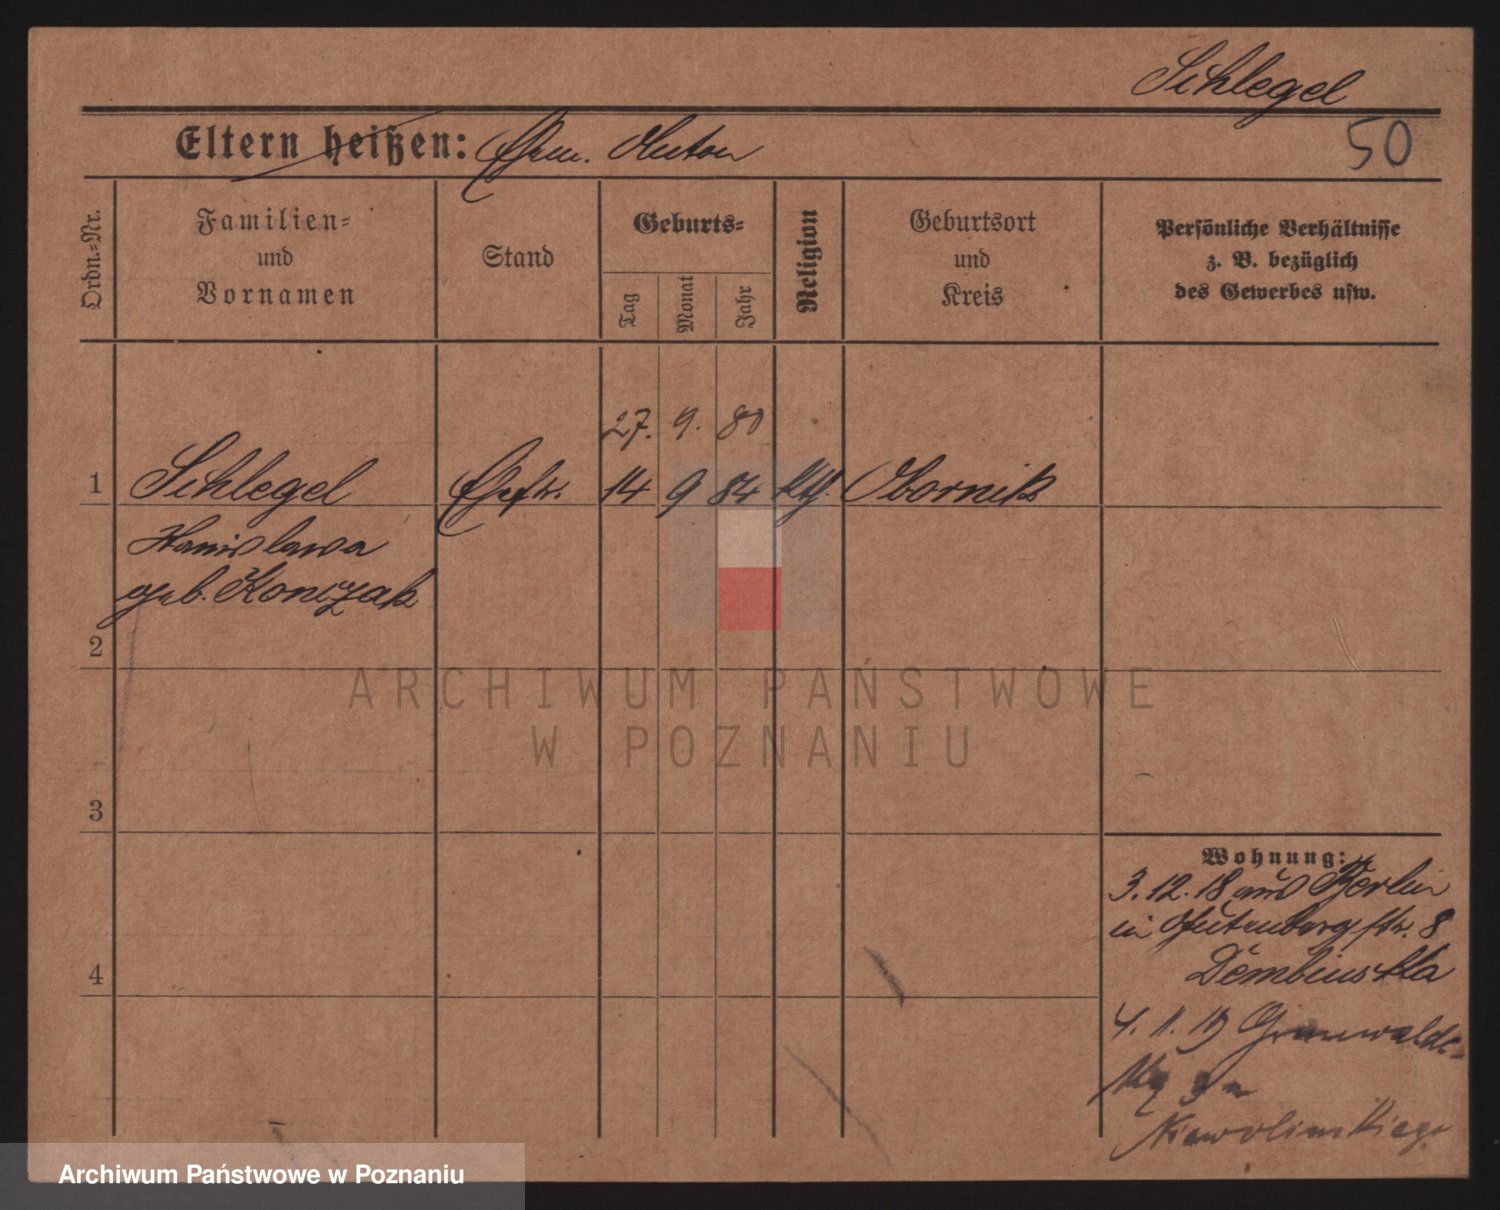 Schlegel
Eltern heißen: Ehem. Anton
50
Ordn.-Nr.
Familien-
und
Vornamen
Stand
Geburts-
Tag
Monat
Jahr
Religion
Geburtsort
und
Kreis
Persönliche Verhältnisse
z. B. bezüglich
des Gewerbes usw.
27. 9. 80
1 Schlegel Ehefr. 14 9 84 kth. Obornik
Stanislawa
geb. Konczak
2
3
4
Wohnung:
3.12.18 aus Berlin
in Gutenbergstr. 8
Dembinska
4. 1. 19 Grunwalds-
Niewolinskiego
ARCHIWUM PAŃSTWOWE
W POZNANIU
Archiwum Państwowe w Poznaniu